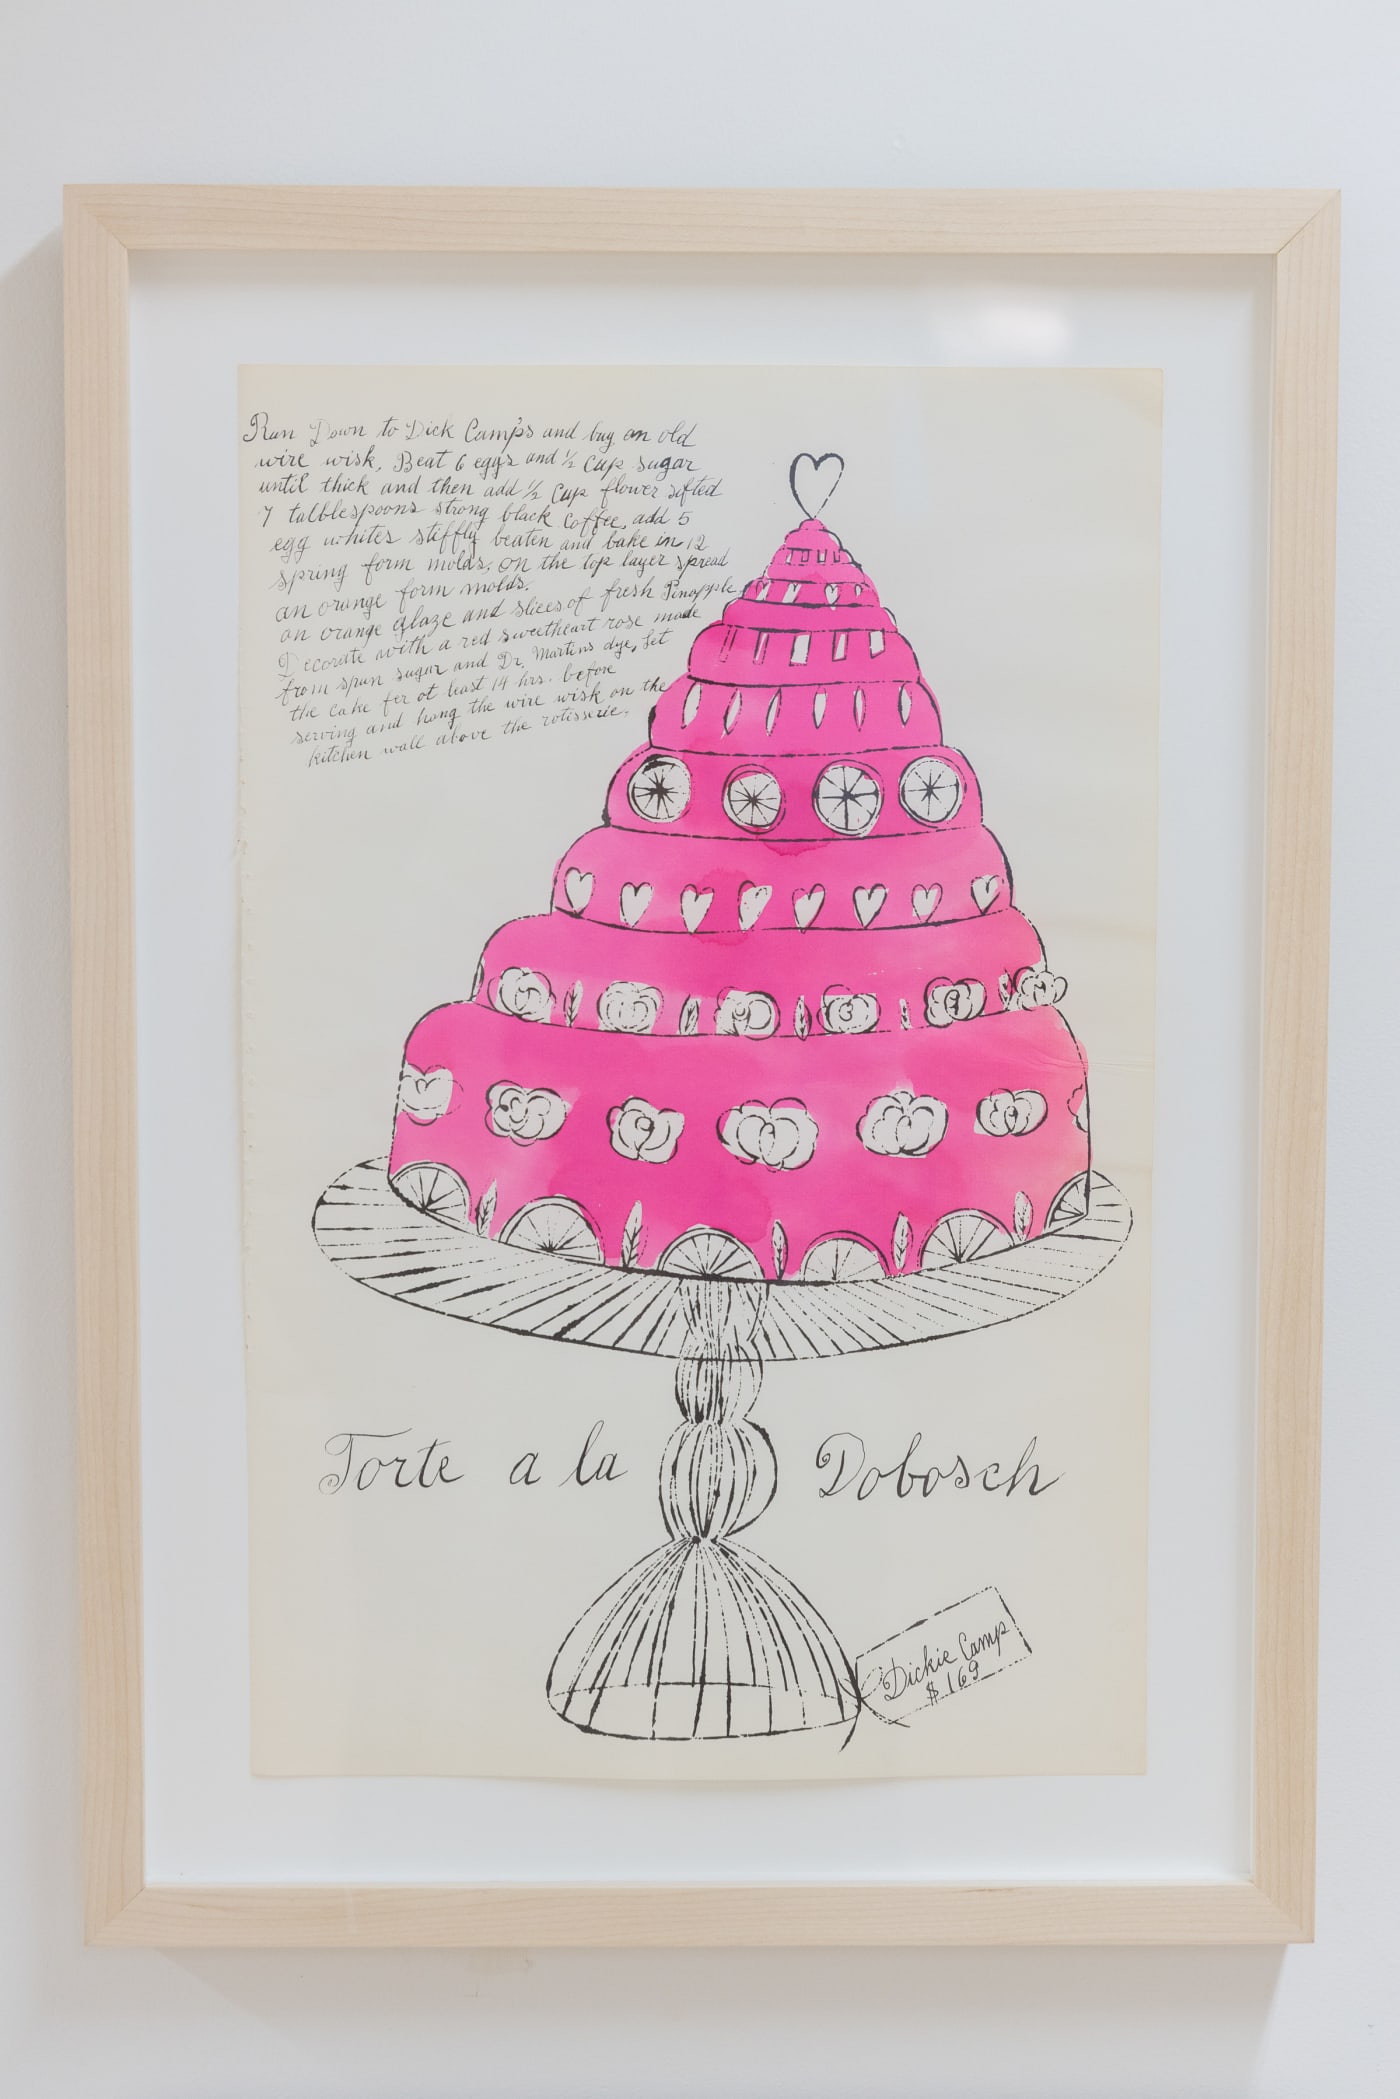 Run Down to Dick Camp's and bug an old
wire wisk, Beat 6 eggs and ½ cup sugar
until thick and then add ½ cup flower sifted
7 talblespoons strong black coffee, add 5
egg whites stiffly beaten and bake in 12
spring form molds. on the top layer spread
an orange form molds.
an orange glaze and slices of fresh Pinapple
Decorate with a red sweetheart rose made
from spun sugar and Dr. Martins dye, Let
the cake fer ot least 14 hrs. before
serving and hang the wire wisk on the
kitchen wall above the rotisserie.
Torte a la Dobosch
Dickie Camp
$169